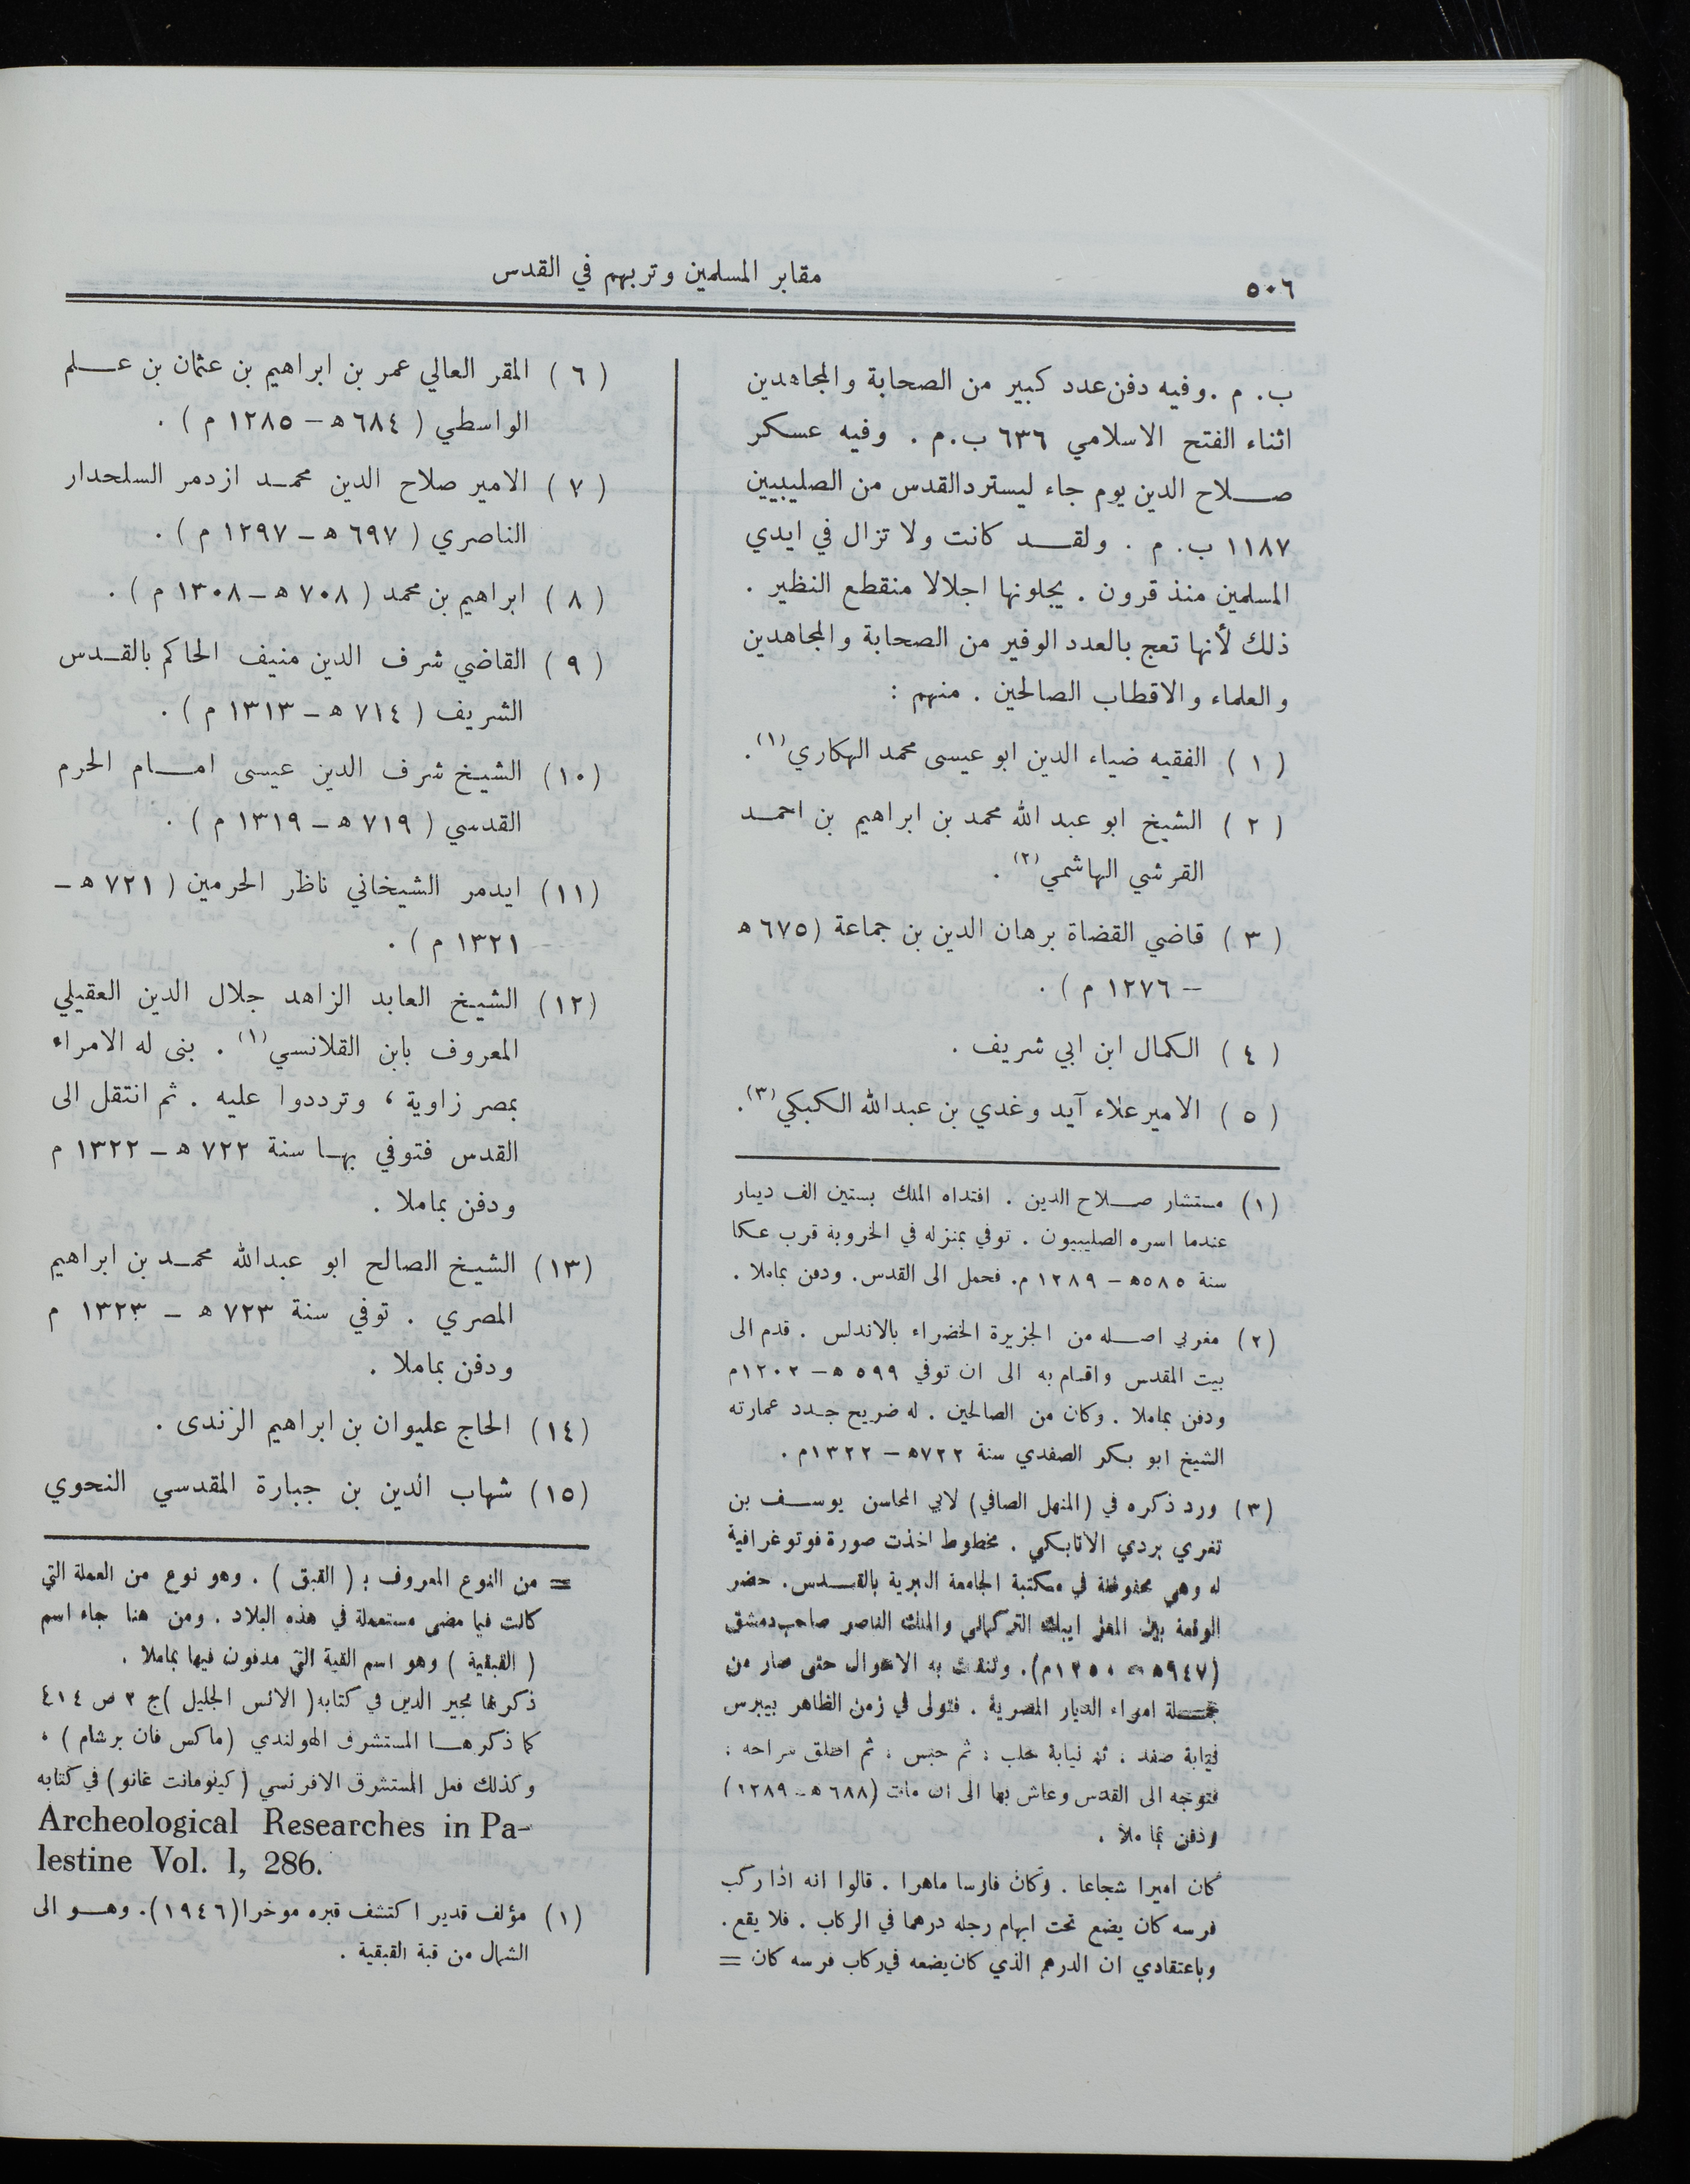 ٥٠٦
مقابر المسلمين وتربهم في القدس
ب. م. وفيه دفن عدد كبير من الصحابة والمجاهدين
اثناء الفتح الاسلامي ٦٣٦ ب.م. وفيه عسكر
صلاح الدين يوم جاء ليسترد القدس من الصليبيين
١١٨٧ ب. م . ولقد كانت ولا تزال في ايدي
المسلمين منذ قرون . يجلونها اجلالا منقطع النظير .
ذلك لأنها تعج بالعدد الوفير من الصحابة والمجاهدين
والعلماء والاقطاب الصالحين . منهم :
( ١ ) الفقيه ضياء الدين ابو عيسى محمد الهكاري(١).
( ٢ ) الشيخ ابو عبد الله محمد بن ابراهيم بن احمد
القرشي الهاشمي(٢) .
( ٣ ) قاضي القضاة برهان الدين بن جماعة (٦٧٥ ه
– ١٢٧٦ م ) .
( ٤ ) الكمال ابن ابي شريف .
( ٥ ) الامير علاء آيد وغدي بن عبدالله الكبكي(٣).
(١) مستشار صلاح الدين . افتداه الملك بستين الف دينار
عندما اسره الصليبيون . توفي بمنزله في الخروبة قرب عكا
سنة ٥٨٥ه – ١٢٨٩ م. فحمل الى القدس. ودفن بماملا .
(٢) مغربي اصله من الجزيرة الخضراء بالاندلس . قدم الى
بيت المقدس واقام به الى ان توفي ٥٩٩ ه – ١٢٠٢م
ودفن بماملا . وكان من الصالحين . له ضريح جدد عمارته
الشيخ ابو بكر الصفدي سنة ٧٢٢ه – ١٣٢٢م .
(٣) ورد ذكره في (المنهل الصافي) لابي المحاسن يوسف بن
تغري بردي الاتابكي . مخطوط اخذت صورة فوتوغرافية
له وهي محفوظة في مكتبة الجامعة العبرية بالقدس. حضر
الوقعة بين المعز ايبك التركماني والملك الناصر صاحب دمشق
١٢٥٠م). وتنقلت به الاحوال حتى صار من
جملة امراء الديار المصرية . فتولى في زمن الظاهر بيبرس
نيابة صفد . ثم نيابة حلب . ثم حبس . ثم اطلق سراحه .
فتوجه الى القدس وعاش بها الى ان مات (٦٨٨ ه – ١٢٨٩)
ودفن بماملا .
كان اميرا شجاعا . وكان فارسا ماهرا . قالوا انه اذا ركب
فرسه كان يضع تحت ابهام رجله درهما في الركاب . فلا يقع .
وباعتقادي ان الدرهم الذي كان يضعه في ركاب فرسه كان =
( ٦ ) المقر العالي عمر بن ابراهيم بن عثمان بن علم
الواسطي ( ٦٨٤ ه – ١٢٨٥ م ) .
( ٧ ) الامير صلاح الدين محمد ازدمر السلحدار
الناصري ( ٦٩٧ ه – ١٢٩٧ م ) .
( ٨ ) ابراهيم بن محمد ( ٧٠٨ ه – ١٣٠٨ م ) .
( ٩ ) القاضي شرف الدين منيف الحاكم بالقدس
الشريف ( ٧١٤ ه – ١٣١٣ م ) .
(١٠) الشيخ شرف الدين عيسى امام الحرم
القدسي ( ٧١٩ ه – ١٣١٩ م ) .
(١١) ايدمر الشيخاني ناظر الحرمين ( ٧٢١ ه –
١٣٢١ م ) .
(١٢) الشيخ العابد الزاهد جلال الدين العقيلي
المعروف بابن القلانسي(١) . بنى له الامراء
بمصر زاوية ، وترددوا عليه . ثم انتقل الى
القدس فتوفي بها سنة ٧٢٢ ه – ١٣٢٢ م
ودفن بماملا .
(١٣) الشيخ الصالح ابو عبدالله محمد بن ابراهيم
المصري . توفي سنة ٧٢٣ ه – ١٣٢٣ م
ودفن بماملا .
(١٤) الحاج عليوان بن ابراهيم الزندى .
(١٥) شهاب الدين بن جبارة المقدسي النحوي
= من النوع المعروف بـ ( القبق ) . وهو نوع من العملة التي
كانت فيما مضى مستعملة في هذه البلاد . ومن هنا جاء اسم
( القبقية ) وهو اسم القبة التي مدفون فيها بماملا .
ذكرهما مجير الدين في كتابه ( الانس الجليل )ج ٢ ص ٤١٤
كما ذكرها المستشرق الهولندي (ماكس فان برشام ) ،
وكذلك فعل المستشرق الافرنسي (كينومانت غانو) في كتابه
Archeological Researches in Pa-
lestine Vol. 1, 286.
(١) مؤلف قدير اكتشف قبره موخرا (١٩٤٦). وهو الى
الشمال من قبة القبقية .